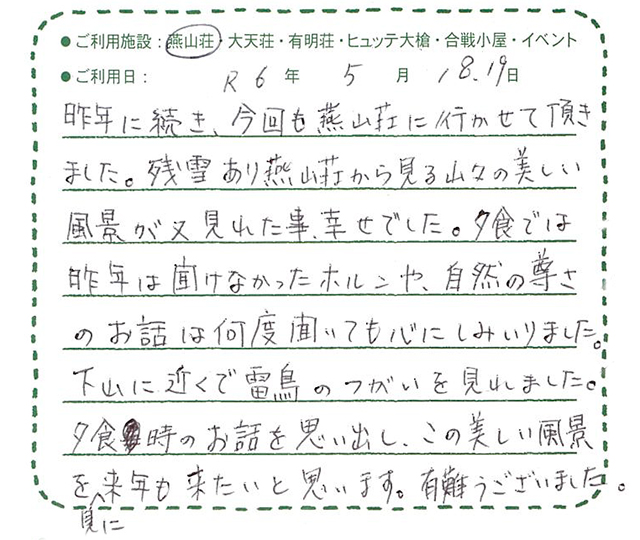 ●ご利用施設：燕山荘・大天荘・有明荘・ヒュッテ大槍・合戦小屋・イベント
●ご利用日： R6年 5月 18.19日
昨年に続き、今回も燕山荘に行かせて頂き
ました。残雪あり燕山荘から見る山々の美しい
風景が又見れた事、幸せでした。夕食では
昨年は聞けなかったホルンや、自然の尊さ
のお話は何度聞いても心にしみいりました。
下山に近くで雷鳥のつがいを見れしました。
夕食時のお話を思い出し、この美しい風景
を見に来年も来たいと思います。有難うございました。